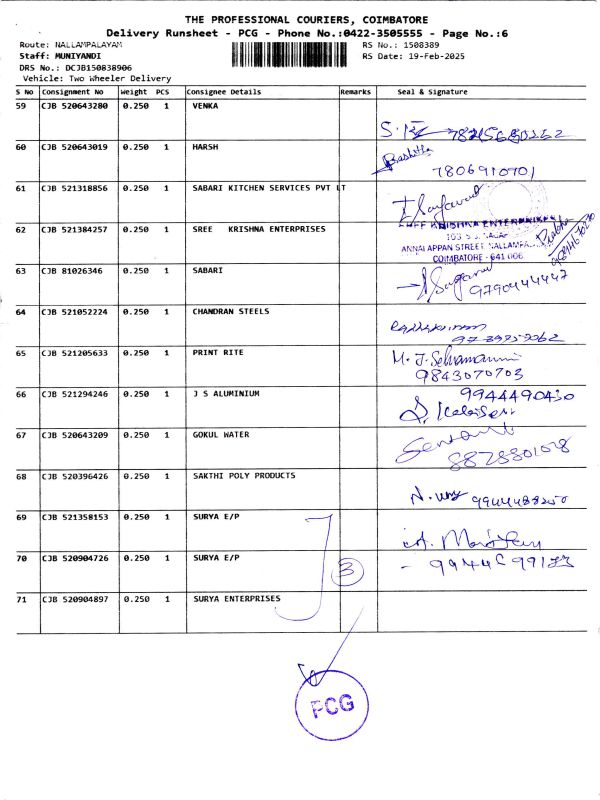 THE PROFESSIONAL COURIERS, COIMBATORE
Delivery Runsheet - PCG - Phone No.:0422-3505555 - Page No.:6
Route: NALLAMPALAYAM RS No.: 1508389
Staff: MUNIYANDI RS Date: 19-Feb-2025
DRS No.: DCJB150838906
Vehicle: Two Wheeler Delivery
S No Consignment No Weight PCS Consignee Details Remarks Seal & Signature
59 CJB 520643280 0.250 1 VENKA
60 CJB 520643019 0.250 1 HARSH
7806910701
61 CJB 521318856 0.250 1 SABARI KITCHEN SERVICES PVT LT
62 CJB 521384257 0.250 1 SREE KRISHNA ENTERPRISES
KRISHNA ENTERPRISES
ANNAI APPAN STREET, NALLAMPA
COIMBATORE - 641 006
63 CJB 81026346 0.250 1 SABARI
9790444447
64 CJB 521052224 0.250 1 CHANDRAN STEELS
65 CJB 521205633 0.250 1 PRINT RITE
9843070703
66 CJB 521294246 0.250 1 J S ALUMINIUM
9944490430
67 CJB 520643209 0.250 1 GOKUL WATER
68 CJB 520396426 0.250 1 SAKTHI POLY PRODUCTS
69 CJB 521358153 0.250 1 SURYA E/P
70 CJB 520904726 0.250 1 SURYA E/P
3
71 CJB 520904897 0.250 1 SURYA ENTERPRISES
PCG